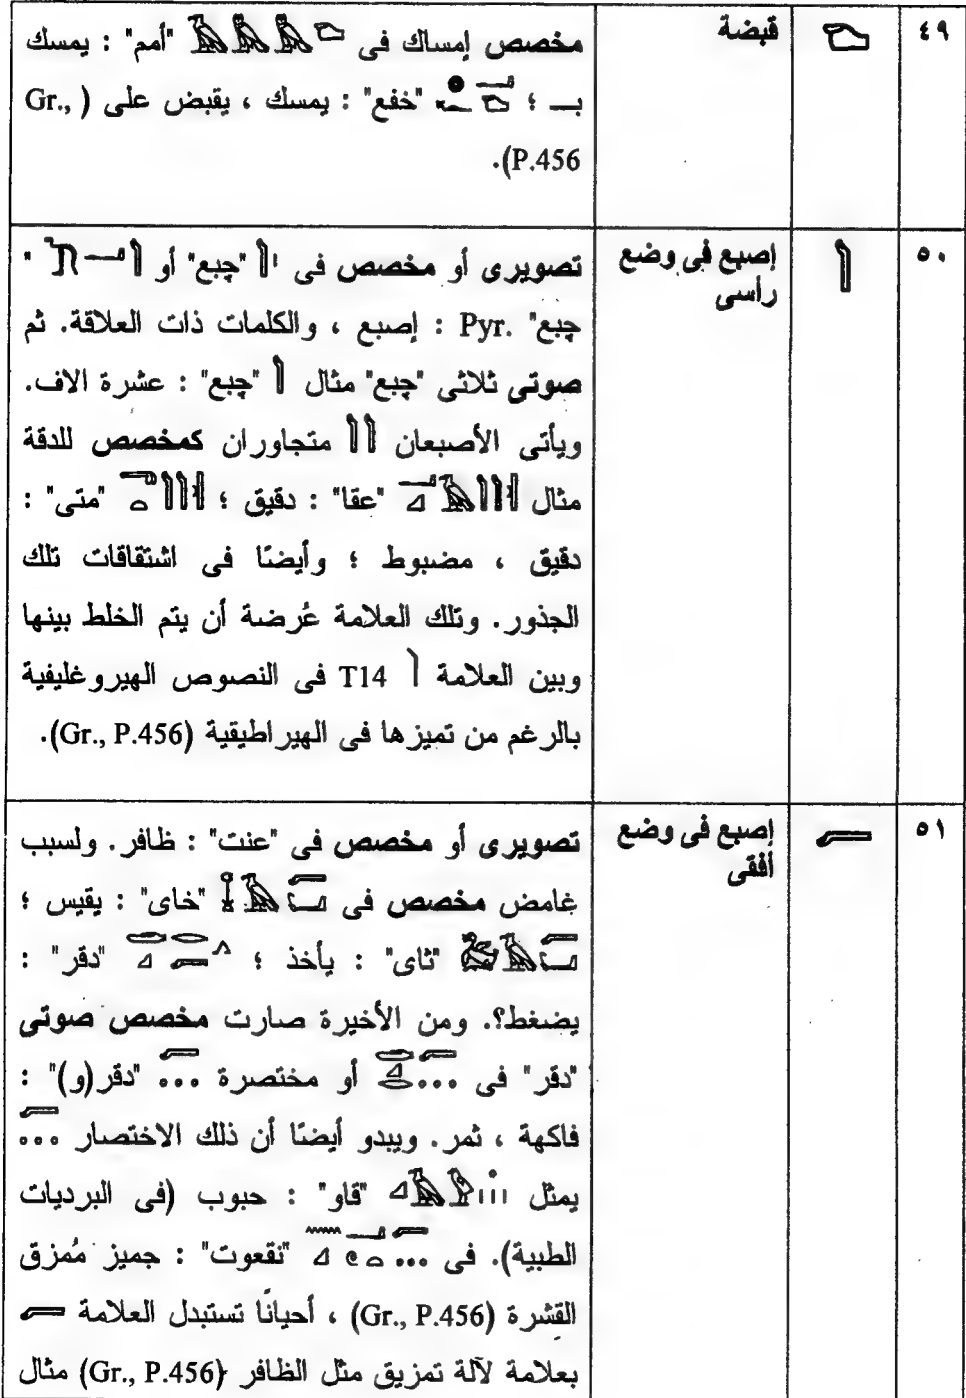 ٤٩ قبضة مخصص إمساك فى "أمم" : يمسك
بـ ؛ "خفع" : يمسك ، يقبض على (Gr.,
P.456).
٥٠ إصبع فى وضع تصويرى أو مخصص فى "چبع" أو "
راسى چبع" Pyr. : إصبع ، والكلمات ذات العلاقة. ثم
صوتى ثلاثى "چبع" مثال "چبع" : عشرة الاف.
ويأتى الأصبعان متجاوران كمخصص للدقة
مثال "عقا" : دقيق ؛ "متى" :
دقيق ، مضبوط ؛ وأيضًا فى اشتقاقات تلك
الجذور. وتلك العلامة عُرضة أن يتم الخلط بينها
وبين العلامة T14 فى النصوص الهيروغليفية
بالرغم من تميزها فى الهيراطيقية (Gr., P.456).
٥١ إصبع فى وضع تصويرى أو مخصص فى "عنت" : ظافر. ولسبب
أفقى غامض مخصص فى "خاى" : يقيس ؛
"ثاى" : يأخذ ؛ "دقر" :
يضغط؟. ومن الأخيرة صارت مخصص صوتى
"دقر" فى أو مختصرة "دقر(و)" :
فاكهة ، ثمر. ويبدو أيضًا أن ذلك الاختصار
يمثل "قاو" : حبوب (فى البرديات
الطبية). فى "نقعوت" : جميز مُمزق
القشرة (Gr., P.456) ، أحيانًا تستبدل العلامة
بعلامة لآلة تمزيق مثل الظافر (Gr., P.456) مثال